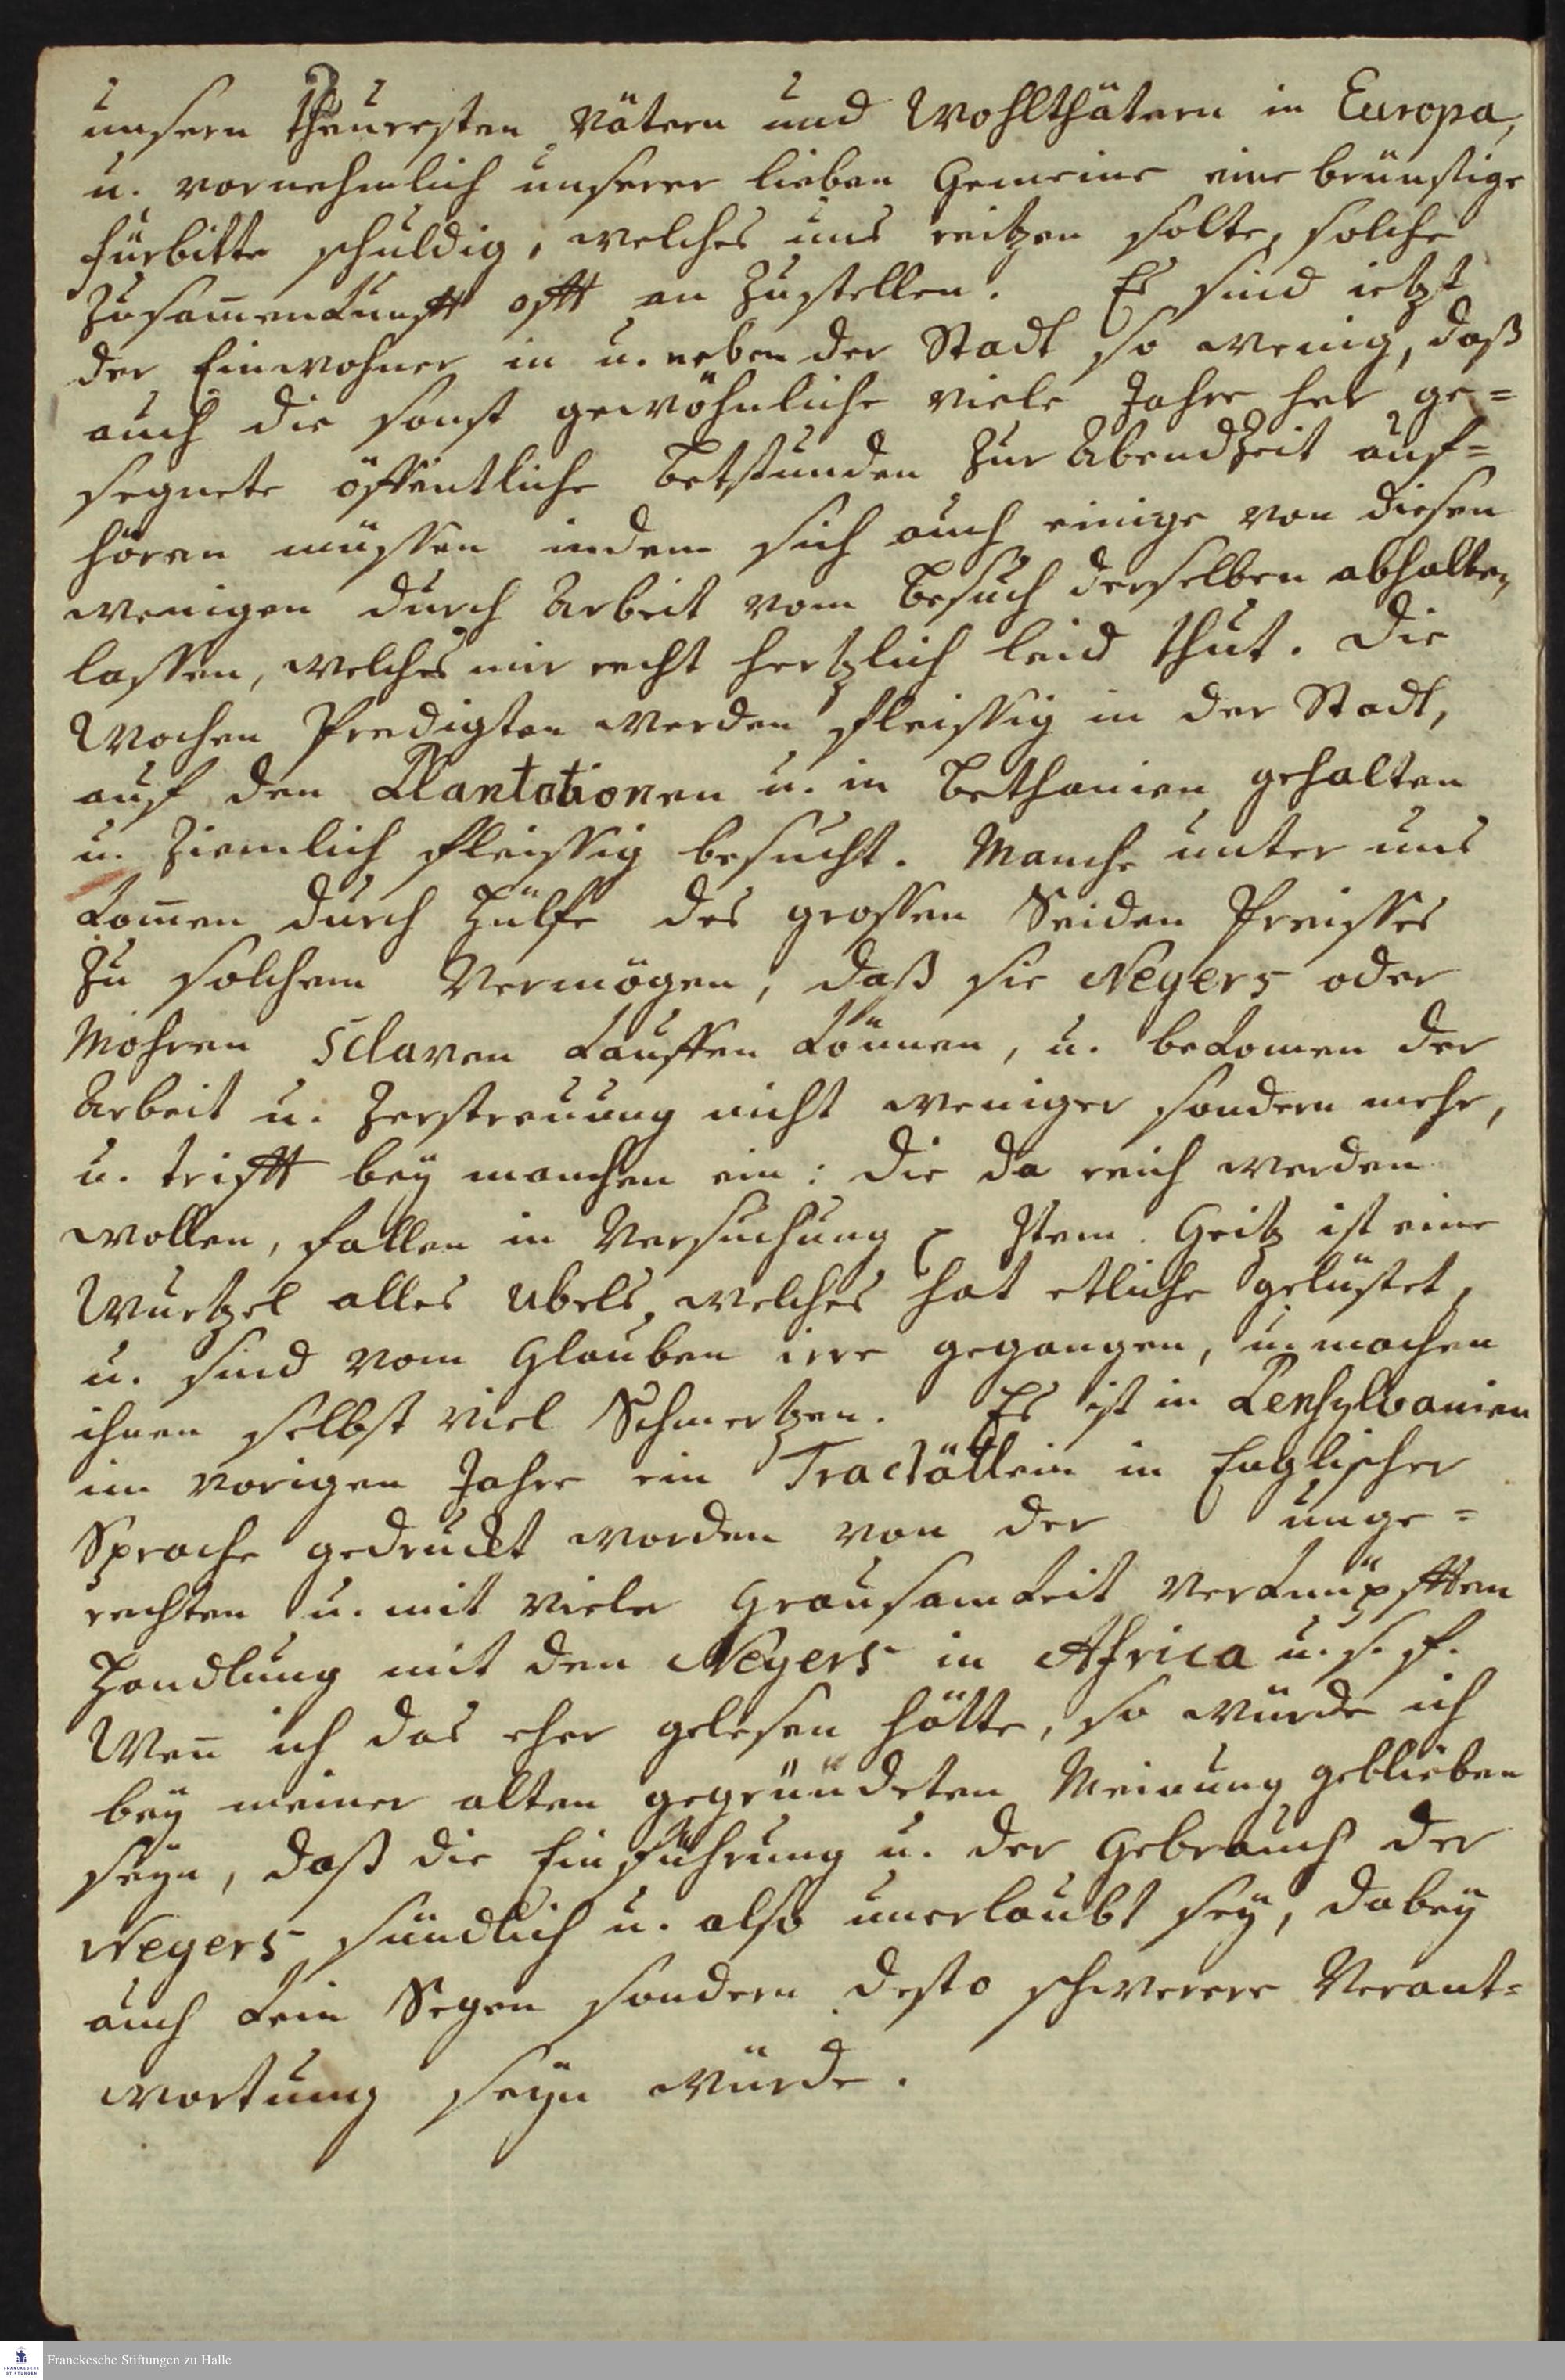 unsern theuresten Vätern und Wohlthätern in Europa,
u. vornehmlich unserer lieben Gemeine eine brünstige
Fürbitte schuldig, welches uns reitzen solte, solche
Zusam̅enkunfft offt an Zustellen. Es sind ietzt
der Einwohner in u. neben der Stadt so wenig, daß
auch die sonst gewöhnliche viele Jahre her ge=
segnete öffentliche Betstunden zur Abendzeit auf=
hören müssen indem sich auch einige von diesen
wenigen durch Arbeit vom Besuch derselben abhalten
lassen, welches mir recht hertzlich leid thut. Die
Wochen Predigten werden fleissig in der Stadt,
auf den Plantationen u. in Bethanien gehalten
u. ziemlich fleissig besucht. Manche unter uns
kom̅en durch Hülfe des grossen Seiden Preisses
zu solchem Vermögen, daß sie Negers oder
Mohren Sclaven kauffen können, u. bekomen der
Arbeit u. Zerstreuung nicht weniger sondern mehr,
u. trifft bey manchen ein: die da reich werden
wollen, fallen in Versuchung Item. Geitz ist eine
Wurtzel alles Ubels, welches hat etliche gelüstet,
u. sind vom Glauben irre gegangen, u. machen
ihnen selbst viel Schmertzen. Es ist in Pensylvanien
im vorigen Jahre ein Tractätlein in Englischer
Sprache gedruckt worden von der unge=
rechten u. mit viele Grausamkeit verknüpfften
Handlung mit den Negers in Africa u. s. f.
Wen̅ ich das eher gelesen hätte, so würde ich
bey meiner alten gegründeten Meinung geblieben
seyn, daß die Einführung u. der Gebrauch der
Negers sündlich u. also unerlaubt sey, dabey
auch kein Segen sondern desto schwerere Verant=
wortung seyn würde.
FRANCKESCHE STIFTUNGEN
Franckesche Stiftungen zu Halle